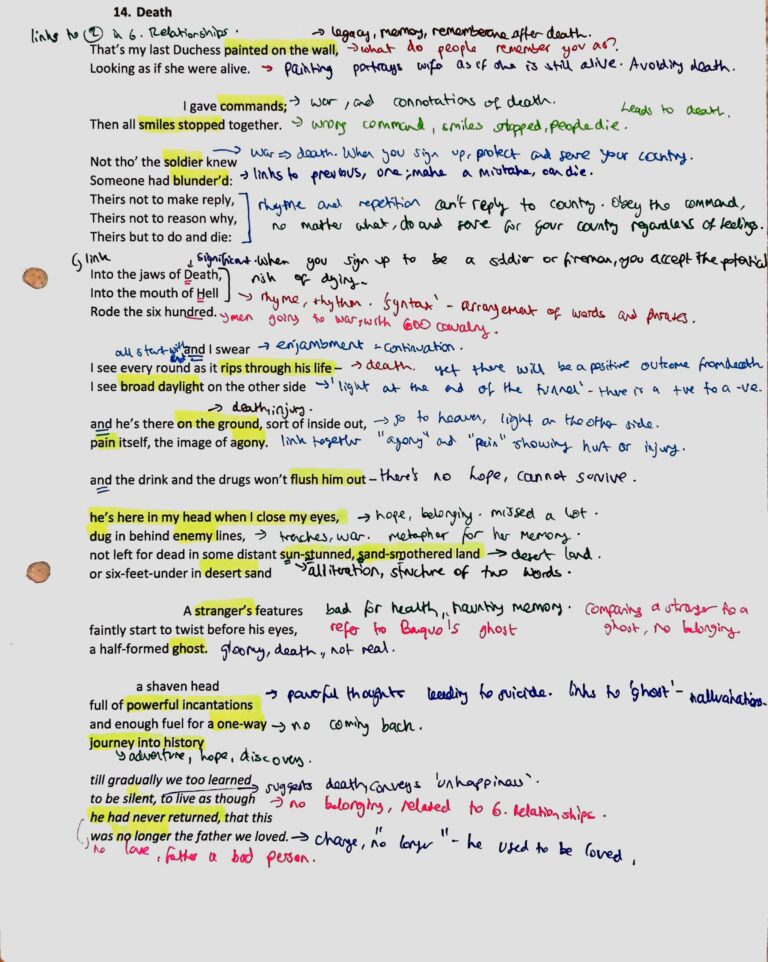 14. Death
links to ② & 6. Relationships. → legacy, memory, rememberone after death.
That's my last Duchess painted on the wall, → what do people remember you as?
Looking as if she were alive. → Painting portrays wife as if she is still alive. Avoiding death.
I gave commands; → war, and connotations of death.
leads to death.
Then all smiles stopped together. → wrong command, smiles stopped, people die.
Not tho' the soldier knew → war => death. When you sign up, protect and serve your country.
Someone had blunder'd: → links to previous, one; make a mistake, can die.
Theirs not to make reply,
Theirs not to reason why,
Theirs but to do and die:
rhyme and repetition can't reply to country. Obey the command,
no matter what, do and serve for your country regardless of feelings.
link
significant. When you sign up to be a soldier or fireman, you accept the potential
Into the jaws of Death, risk of dying.
Into the mouth of Hell → rhyme, rhythm. 'syntax' - arrangement of words and phrases.
Rode the six hundred. → men going to war, with 600 cavalry.
all start with and I swear → enjambment - continuation.
I see every round as it rips through his life – → death. yet there will be a positive outcome from death
I see broad daylight on the other side → 'light at the end of the tunnel' - there is a +ve to a -ve.
→ death, injury.
and he's there on the ground, sort of inside out, → go to heaven, light on the other side.
pain itself, the image of agony. link together "agony" and "pain" showing hurt or injury.
and the drink and the drugs won't flush him out – there's no hope, cannot survive.
he's here in my head when I close my eyes, → hope, belonging. missed a lot.
dug in behind enemy lines, → trenches, war. metaphor for her memory.
not left for dead in some distant sun-stunned, sand-smothered land → desert land.
or six-feet-under in desert sand → alliteration, structure of two words.
A stranger's features bad for health, haunting memory. Comparing a stranger to a
faintly start to twist before his eyes, refer to Baquo's ghost ghost, no belonging.
a half-formed ghost. gloomy, death, not real.
a shaven head
full of powerful incantations → powerful thoughts leading to suicide. links to 'ghost' - halluvinations.
and enough fuel for a one-way → no coming back.
journey into history
→ adventure, hope, discovery.
till gradually we too learned → suggests death, conveys 'unhappiness'.
to be silent, to live as though → no belonging, related to 6. Relationships.
he had never returned, that this
was no longer the father we loved. → change, "no longer" - he used to be loved,
no love, father a bad person.